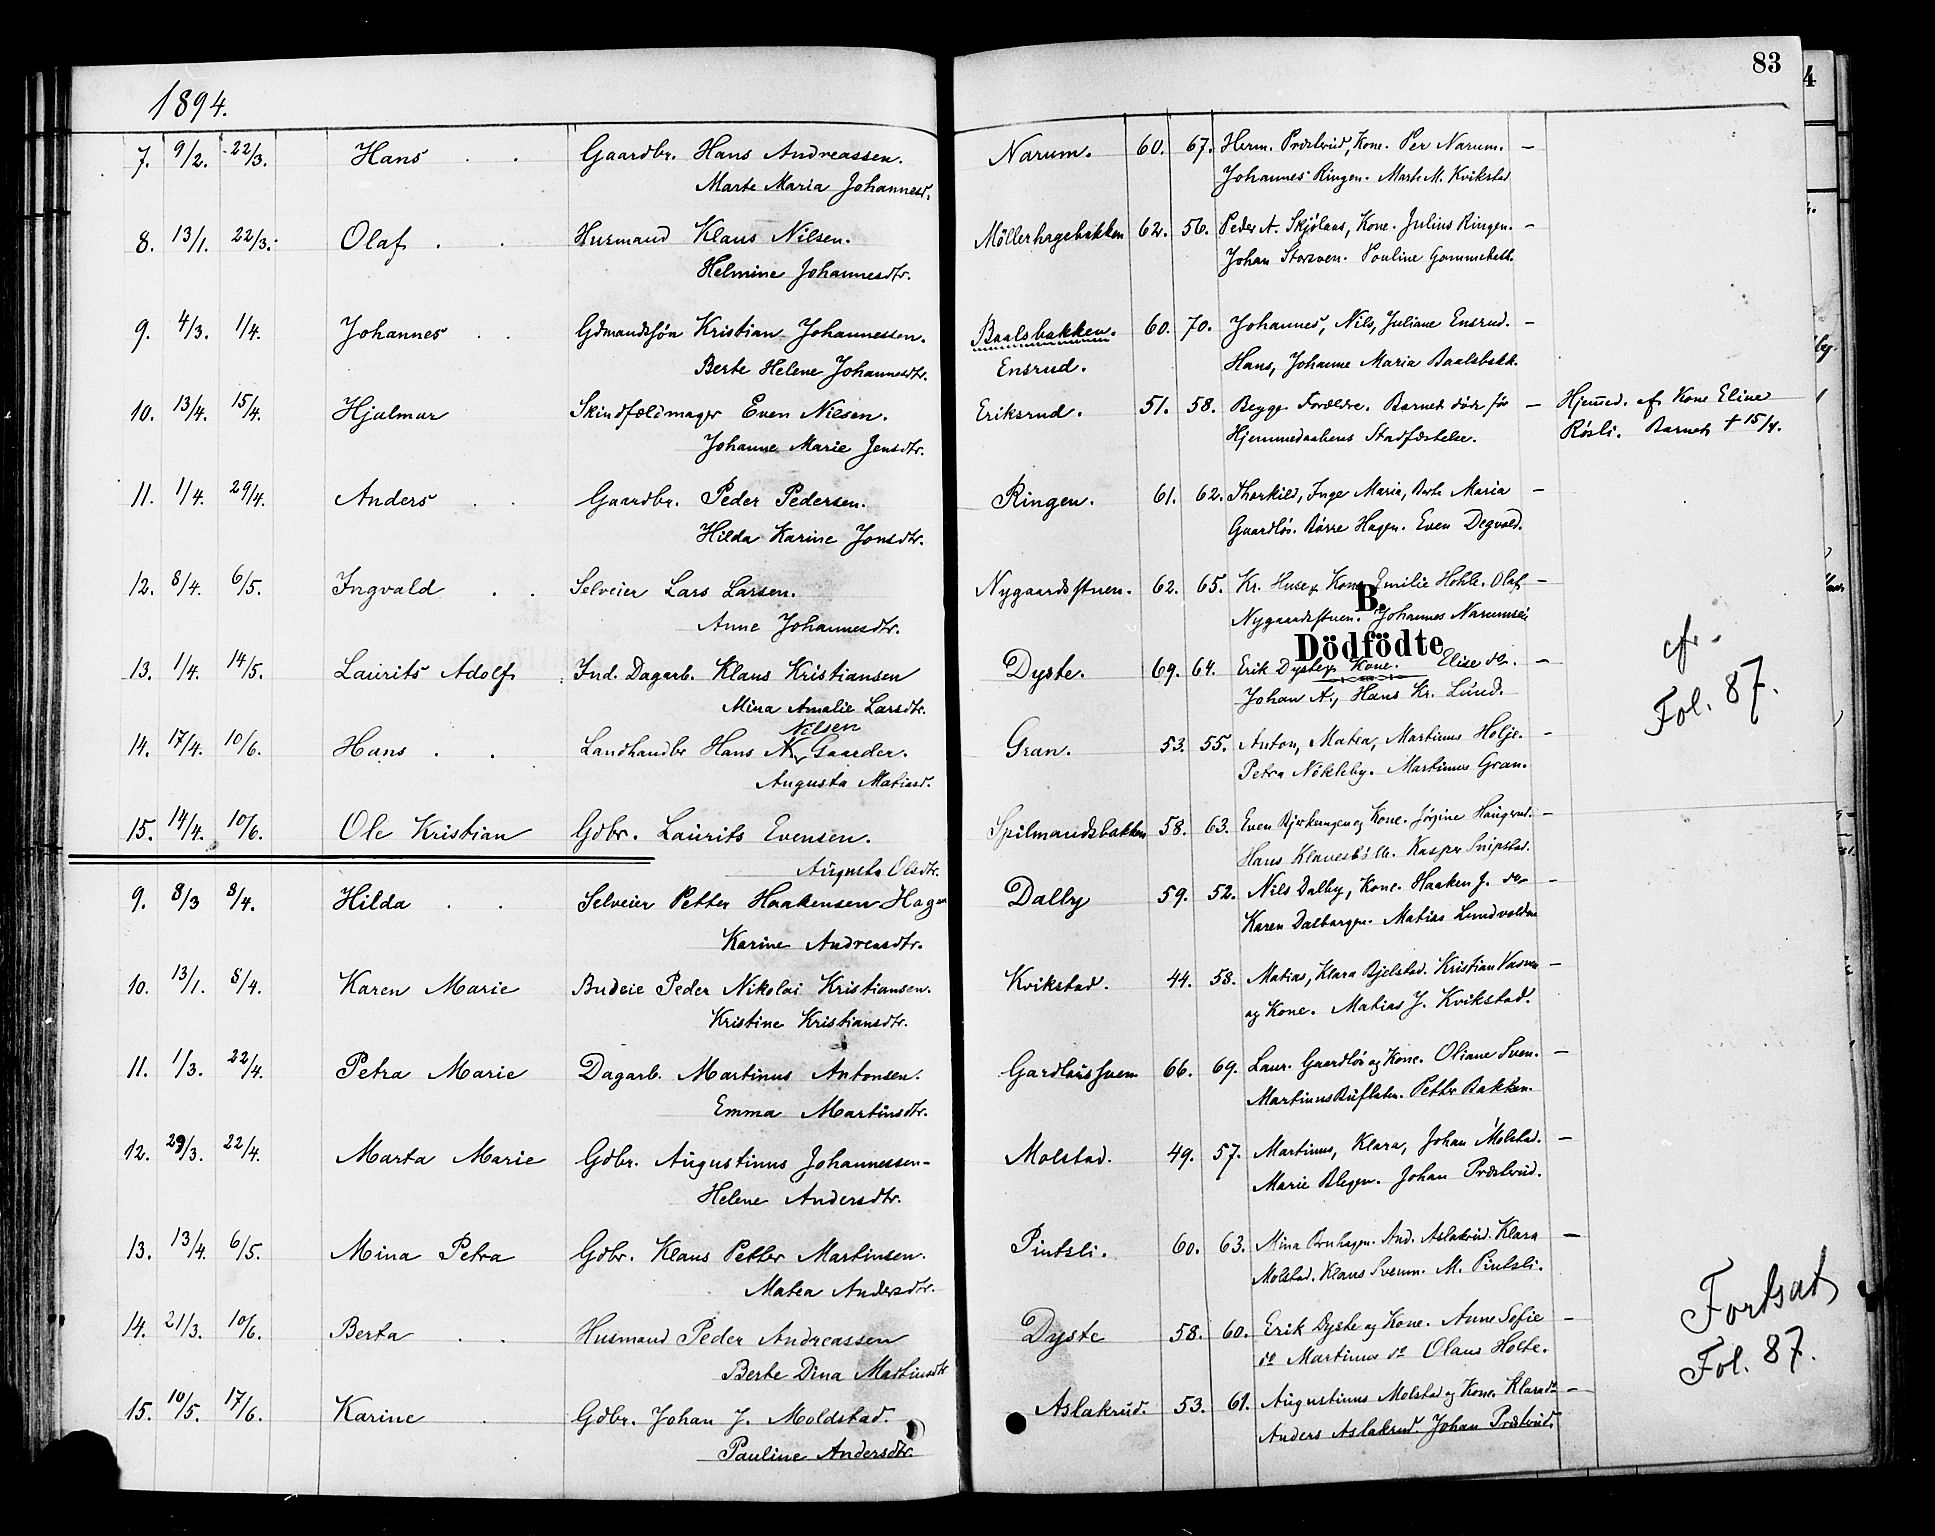 83
1894.
7. 9/2. 22/3. Hans . . Gaardbr. Hans Andreassen. Narum. 60. 67. Herm. Præstrud, Kone. Per Narum. —
Marte Maria Johannesd. Johannes Ringen. Marte M. Kvikstad
8. 13/1. 22/3. Olaf . . Husmand Klaus Nilsen. Möllerhagebakken 62. 56. Peder A. Skjölaas, Kone. Julius Ringen. —
Helmine Johannesdtr. Johan Storsven. Pouline Gommestad.
9. 4/3. 1/4. Johannes . . Gdmandssön Kristian Johannessen. Baalsbakken. 60. 70. Johannes, Nils, Juliane Ensrud. —
Berte Helene Johannesdtr. Ensrud. Hans, Johanne Maria Baalsbakk.
10. 13/4. 15/4. Hjalmar Skindfældmager Even Nilsen. Eriksrud. 51. 58. Begge Forældre. Barnet döde för — Hjemmed. af Kone Eline
Johanne Marie Jensdtr. Hjemmedaabens Stadfæstelse. Rösli. Barnet † 15/4.
11. 1/4. 29/4. Anders . . Gaardbr. Peder Pedersen. Ringen. 61. 62. Thorkild, Inge Maria, Berte Maria —
Hilda Karine Jonsdtr. Gaardlös. Börre Hagen. Even Degvold.
12. 8/4. 6/5. Ingvald . . Selveier Lars Larsen. Nygaardsstuen. 62. 65. Kr. Huser Kone Emilie Hohle. Olaf —
B.
Anne Johannesdtr. Nygaardsstuen. Johannes Narumsei
Dödfödte
cfr.
13. 1/4. 14/5. Laurits Adolf Ind. Dagarb. Klaus Kristiansen Dyste. 69. 64. Erik Dyste, Kone. Elise do. —
Mina Amalie Larsdtr. Johan A., Hans Kr. Lund. Fol. 87.
Nilsen
14. 17/4. 10/6. Hans . . Landhandler Hans N. Gaarder. Gran. 53. 55. Anton, Matea, Martinus Holje. —
Augusta Matiasd. Petra Nökleby. Martinus Gran.
15. 14/4. 10/6. Ole Kristian Gdbr. Laurits Evensen. Spilmandsbakken 58. 63. Even Bjerkengen og Kone. Jörgine Haugsrud. —
Augusta Olsdtr. Hans Klavesbölle. Kasper Snipstad.
9. 8/3 8/4. Hilda . . Selveier Petter Haakensen Hagen Dalby 59. 52. Nils Dalby, Kone. Haaken J. do —
Karine Andreasdtr. Karen Dalborgen. Matias Lundvolden
10. 13/1. 8/4. Karen Marie Budeie Peder Nikolai Kristiansen. Kvikstad. 44. 58. Matias, Klara Bjelstad. Kristian —
Kristine Kristiansdtr. og Kone. Matias J. Kvikstad.
11. 1/3. 22/4. Petra Marie Dagarb. Martinus Antonsen. Gardlössven 66. 69. Laur. Gaardlös og Kone. Oliane Sven. —
Emma Martinsdtr. Martinus Buflaten. Petter Bakken.
12. 29/3. 22/4. Marta Marie Gdbr. Augustinus Johannessen- Molstad. 49. 57. Martinus, Klara, Johan Molstad. —
Helene Andersdtr. Marie Blegen. Johan Præstrud.
13. 13/4. 6/5. Mina Petra Gdbr. Klaus Petter Martinsen. Pintsli. 60. 63. Mina Brnhagen. And. Aslakrud. Klara —
Matea Andersdtr. Molstad. Klaus Svenn. M. Pintsli.
14. 21/3. 10/6. Berta . . Husmand Peder Andreassen Dyste 58. 60. Erik Dyste og Kone. Anne Sofie —
Berte Dina Martinsdtr do Martinus do Olaus Holte.
15. 10/5. 17/6. Karine . Gdbr. Johan J. Moldstad. Aslakrud. 53. 61. Augustinus Molstad og Kone. Klara do —
Pauline Andersdtr. Anders Aslakrud. Johan Præstrud.
Fortsat
Fol. 87.